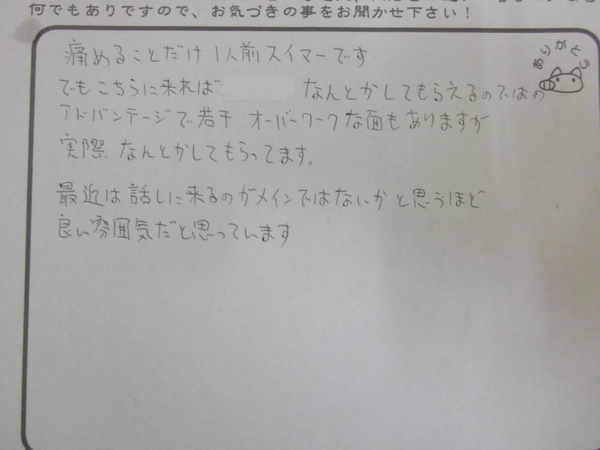 何でもありですので、お気づきの事をお聞かせ下さい！
ありがとう
痛めることだけ1人前スイマーです
でもこちらに来れば なんとかしてもらえるのではの
アドバンテージで若干 オーバーワークな面もありますが
実際 なんとかしてもらってます。
最近は話しに来るのがメインではないかと思うほど
良い雰囲気だと思っています